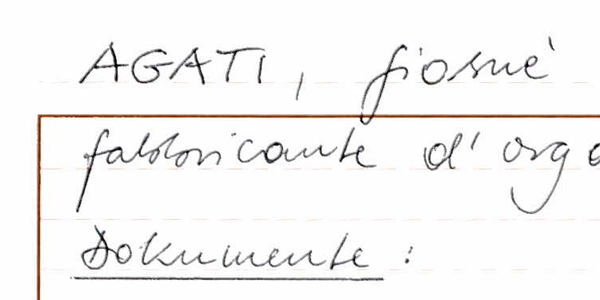 AGATI, Giosuè
fabbricante d'orga
Dokumente: